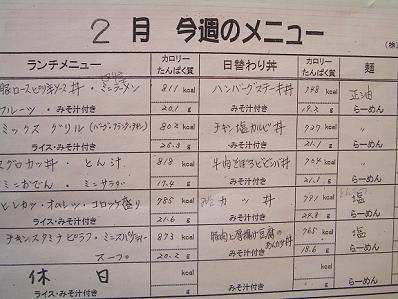 2 月 今週のメニュー
(株)
ランチメニュー カロリー たんぱく質 日替わり丼 カロリー たんぱく質 麺
豚ロースピリ辛ソース丼・ミニラーメン 811 kcal ハンバーグステーキ丼 748 kcal 正油
フルーツ・みそ汁付き 20.1 g みそ汁付き 19.2 g らーめん
ミックスグリル 802 kcal チキン塩カルビ丼 727 kcal 〃
ライス・みそ汁付き 26.3 g みそ汁付き 21.1 g らーめん
マグロカツ丼・とん汁 818 kcal 牛肉そぼろビビンバ丼 704 kcal 〃
ミニおでん・ミニサラダ 17.4 g みそ汁付き 21.1 g らーめん
ヒレカツ・オムレツ・コロッケ盛り 785 kcal カツ丼 791 kcal 塩
ライス・みそ汁付き 21.6 g みそ汁付き 24.8 g らーめん
チキンスタミナピラフ・ミニスパゲティー 873 kcal 豚肉と厚揚げ豆腐のあんかけ丼 765 kcal 塩
スープ 20.2 g みそ汁付き 18.6 g らーめん
休 日 kcal kcal
ライス・みそ汁付き g みそ汁付き g らーめん